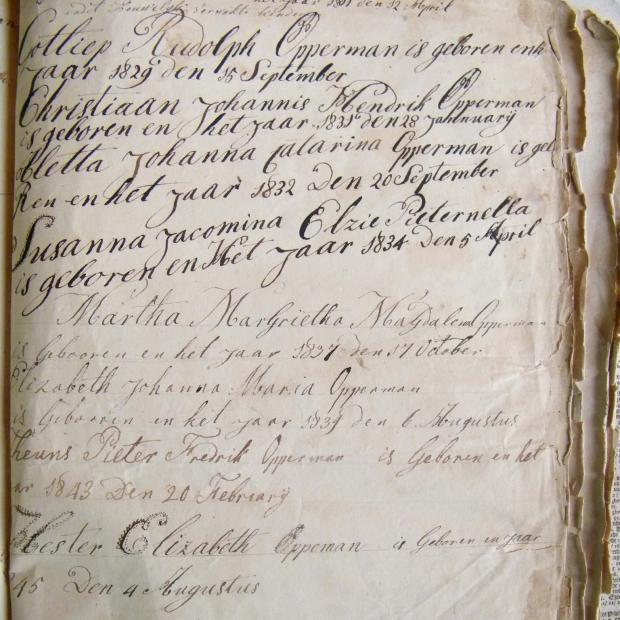 jaar 1851 den 12 April
Gotliep Rudolph Opperman is geboren en h
Jaar 1829 den 15 September
Christiaan Johannis Hendrik Opperman
is geboren en het jaar 1831 den 28 Jannuarij
Aletta Johanna Catarina Opperman is geb
Ren en het jaar 1832 Den 20 September
Susanna Jacomina Elzie Pieternella
is geboren en Het jaar 1834 Den 5 April
Martha Margrietha Magdalena Opperman
is Gebooren en het jaar 1837 den 17 October
Elizabeth Johanna Maria Opperman
is Geborren en het jaar 1839 den 6 Augustus
Theuns Pieter Fredrik Opperman is Geboren en het
ar 1843 Den 20 February
Hester Elizabeth Oppeman is Geboren en jaar
45 Den 4 Augustus